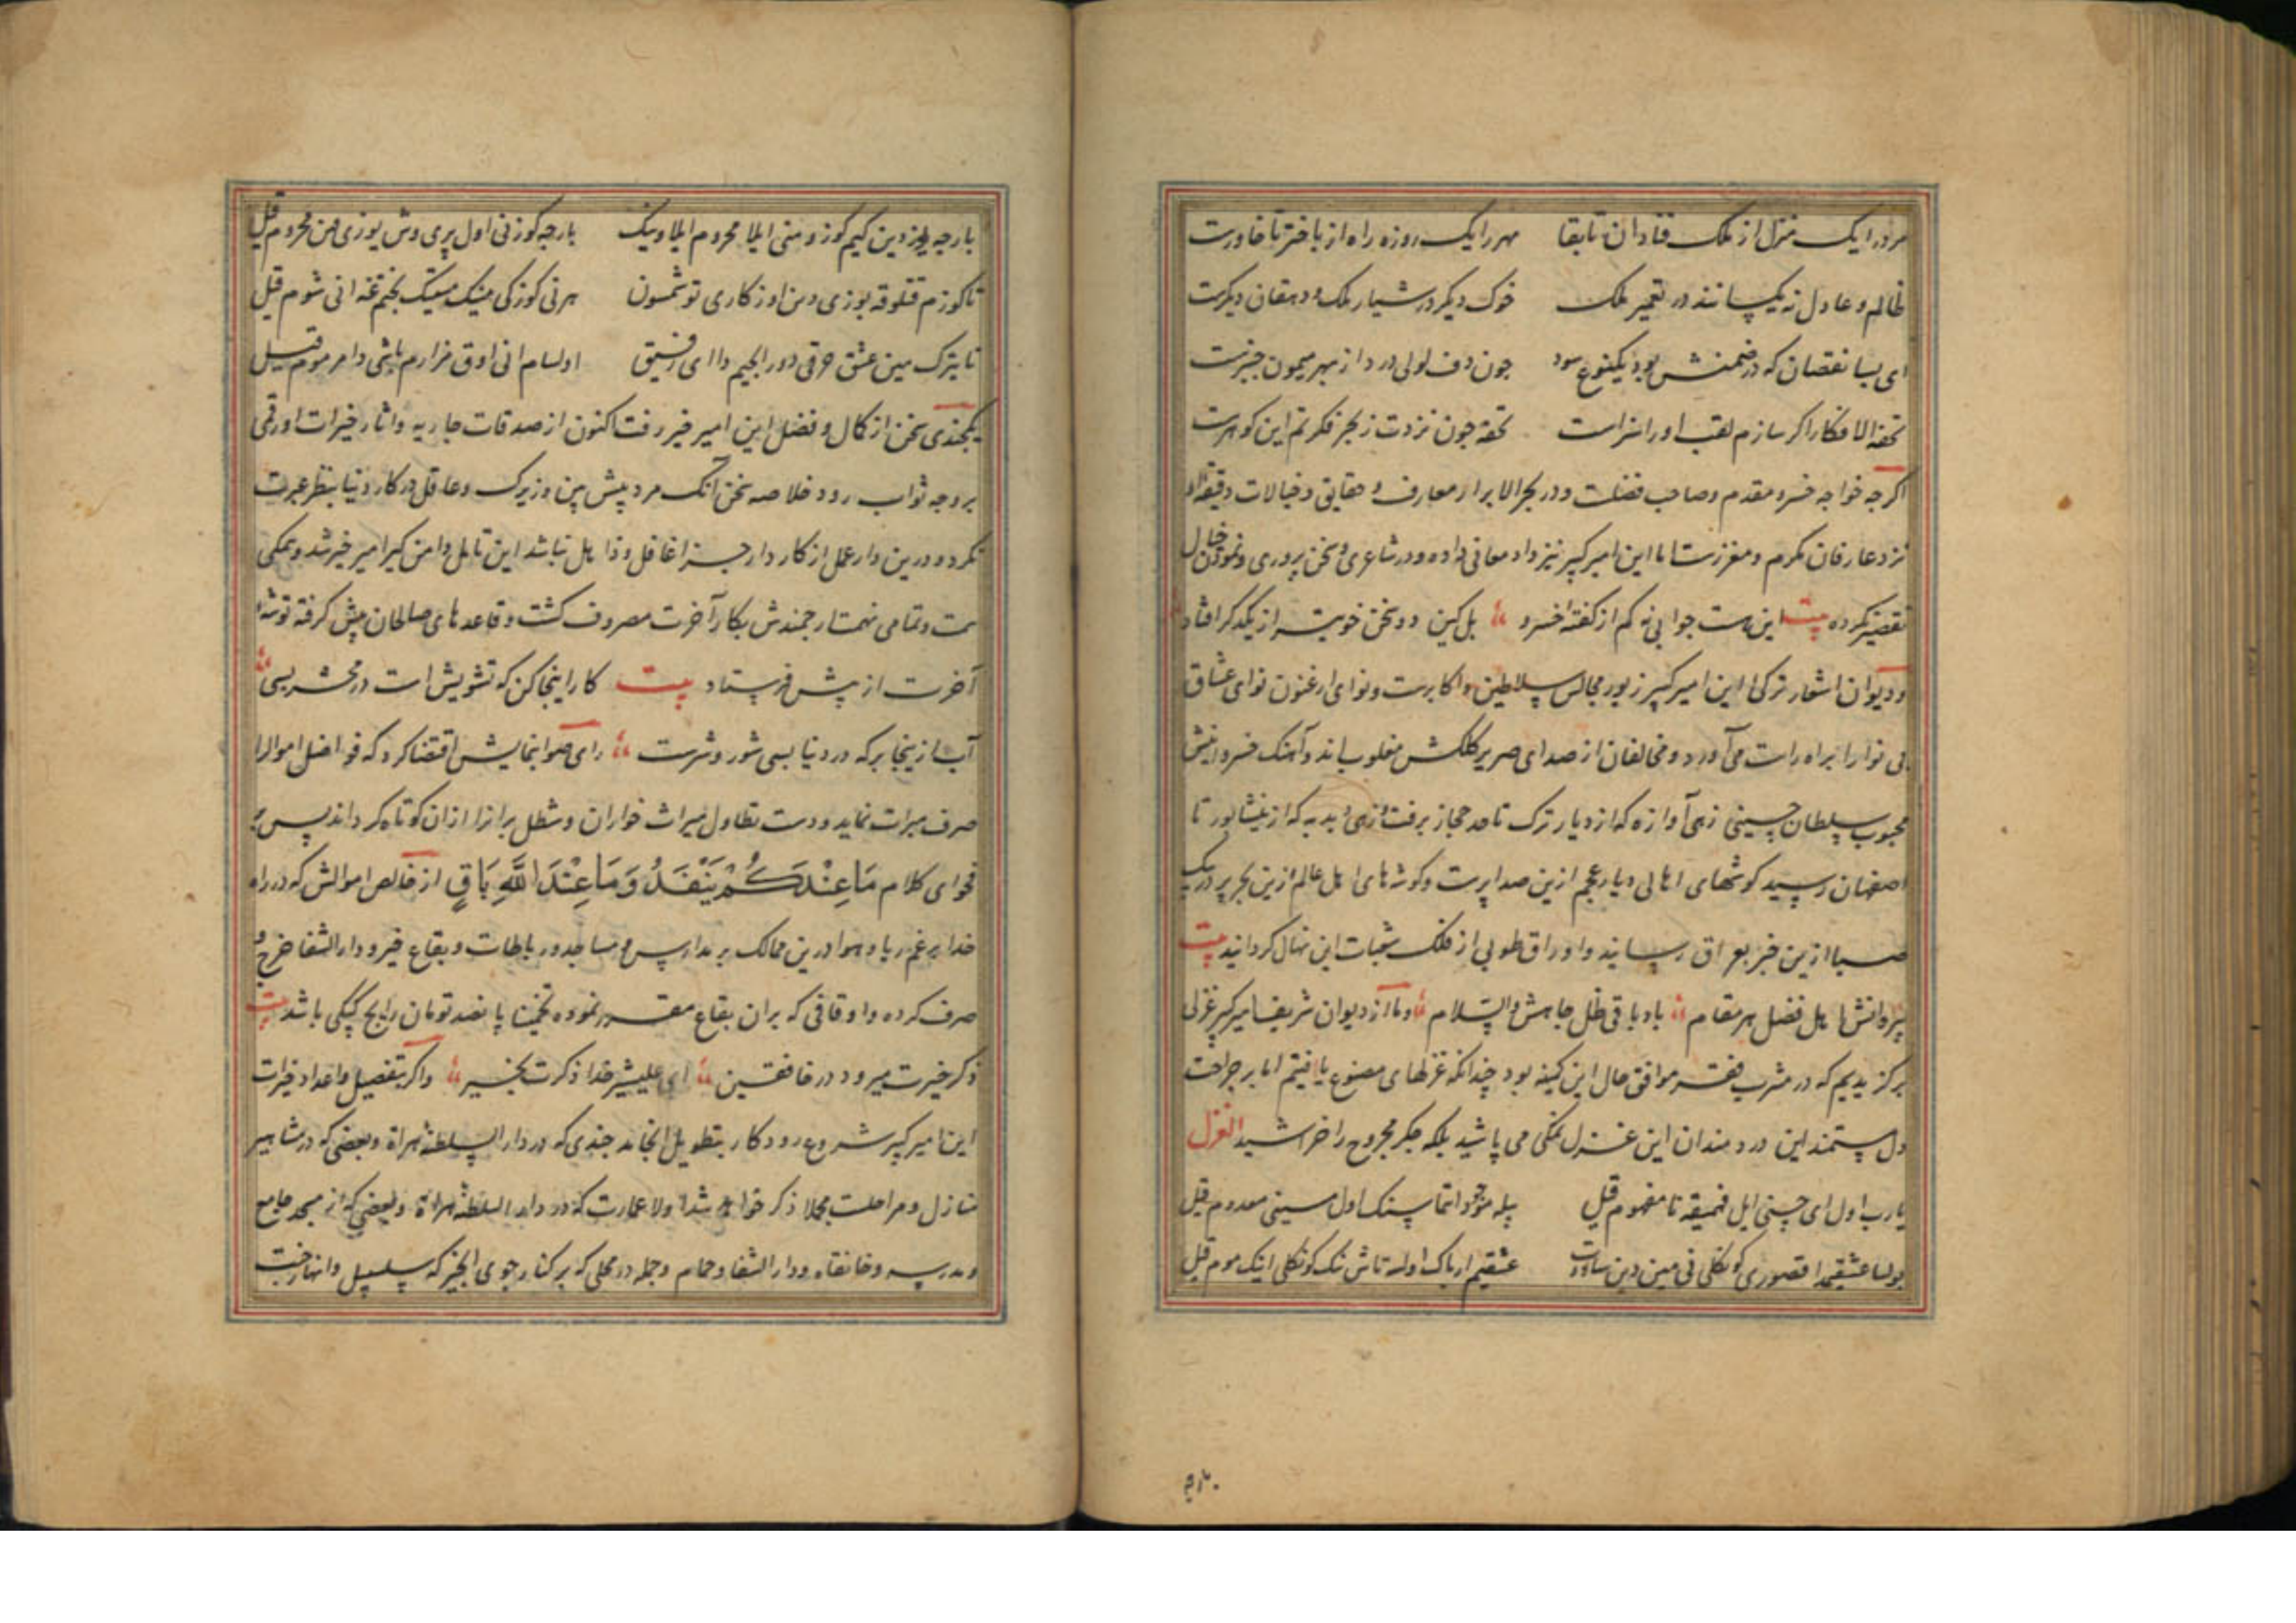 مرد را یک منزل از ملک فنا دان تا بقا مهر را یک روزه راه از باختر تا خاورست
ظالم و عادل نه یکسانند در تعمیر ملک خوک دیگر در شیار ملک و دهقان دیگرست
ای بسا نقصان که در ضمنش بود یکنوع سود چون دف لولی درد از بهر میمون چنبرست
تحفة الافکار اگر سازم لقب او را سزاست تحفه چون نزدت ز بحر فکرتم این گوهرست
اگرچه خواجه خسرو مقدم و صاحب فضلست و در بحر الابرار معارف و حقایق و خیالات دقیقه او
نزد عارفان مکرم و معززست اما این امیر کبیر نیز داد معانی داده و در شاعری و سخن پروری و نمودن خیال
تقصیر نکرده بیت این هست جوابی نه کم از گفته خسرو بل کین دو سخن خوبتر از یکدگر افتاد
و دیوان اشعار ترکی این امیر کبیر زیور مجالس سلاطین و اکابرست و نوای ارغنون نوای عشاق
بی نوا را براه راست می آورد و مخالفان از صدای صریر کلکش مغلوب اند و آهنگ خسروانیش
محبوب سلطان حسینی زهی آوازه که از دیار ترک تا حد حجاز برفت و زهی دبدبه که از نیشابور تا
اصفهان رسید گوشهای اهالی دیار عجم ازین صدا پرست و گوشهای اهل عالم ازین بحر پر در پیک
صبا ازین خبر بعراق رسانید و اوراق طوبی از فلک شعبات این نهال گردانید بیت
پروانش اهل فضل هر مقام باد باقی ظل جاهش والسلام و ما از دیوان شریف امیر کبیر غزلی
برگزیدیم که در مشرب فقر موافق حال این کمینه بود چندانکه غزلهای مصنوع یافتیم اما بر جراحت
دل مستمند این دردمندان این غزل نمکی می پاشید بلکه جگر مجروح را خراشید الغزل
یارب اول ای حسنی ایل فهمیقه نا مفهوم قیل یله موجود انتماسنک اول سینی معدوم قیل
بولسا عشقیمدا قصوری کونکلی نی مین دین ساووت عشقیم ارپاک اولسه تاش تک کونکلی اینک موم قیل
بارچه
بارچه یوزدین کیم کوزومنی ایلا محروم ایلادینک بارچه کوزنی اول پری وش یوزی دن محروم قیل
تا کوزم قتلوقه یوزی دین اوزکاری توشمسون هر نی کوزکی مینک مینک بختیم غه انی شوم قیل
تا یترک مین عشق حرقی دور الجیم دا ای رفیق اولسام انی اوق مزارم تاشی دا مرموم قیل
یکچندی سخن از کمال و فضل این امیر خیر رفت اکنون از صدقات جاریه و اثار خیرات او رقمی
بر وجه ثواب رود خلاصه سخن آنک مرد پیش بین و زیرک و عاقل در کار دنیا بنظر عبرت
نکرده درین دار عمل از کار دار جزا غافل و ذاهل نباشد این تامل دامن گیر امیر خیر شد و همگی
همت و تمامی نهمت ارجمندش بکار آخرت مصروف گشت و قاعدهای صالحان پیش گرفته توشه
آخرت از پیش فرستاد بیت کار اینجا کن که تشویش است در محشر بسی
آب ازینجا بر که در دنیا بسی شور و شرست رای صوابنمایش اقتضا کرد که فواضل اموال را
صرف مبرات نماید و دست تطاول میراث خواران و شطل براتا را از ان کوتاه گرداند پس بر
فحوای کلام مَا عِنْدَكُمْ يَنْفَدُ وَمَا عِنْدَ اللَّهِ بَاقٍ از خالص اموالش که در راه
خدا بر غم ریا و هوا درین ممالک بر مدارس و مساجد و رباطات و بقاع خیر و دار الشفا خرج و
صرف کرده و اوقافی که بران بقاع مقرر نموده تخمینا پانصد تومان رایج کپکی باشد بیت
ذکر خیرت میرود در خافقین ای علیشیر خدا ذکرت بخیر و اگر بتفصیل و اعداد خیرات
این امیر کبیر شروع رود کار بتطویل انجامد چندی که در دار السلطنه هراة و بعضی که در مشاهیر
منازل و مراحلست مجملا ذکر خواهد شد اولا عمارت که در دار السلطنه هراة و بعضی که از مسجد جامع
و مدرسه و خانقاه و دار الشفا و حمام و جمله در محلی که بر کنار جوی انجیز که سلسبیل و انهار جنت